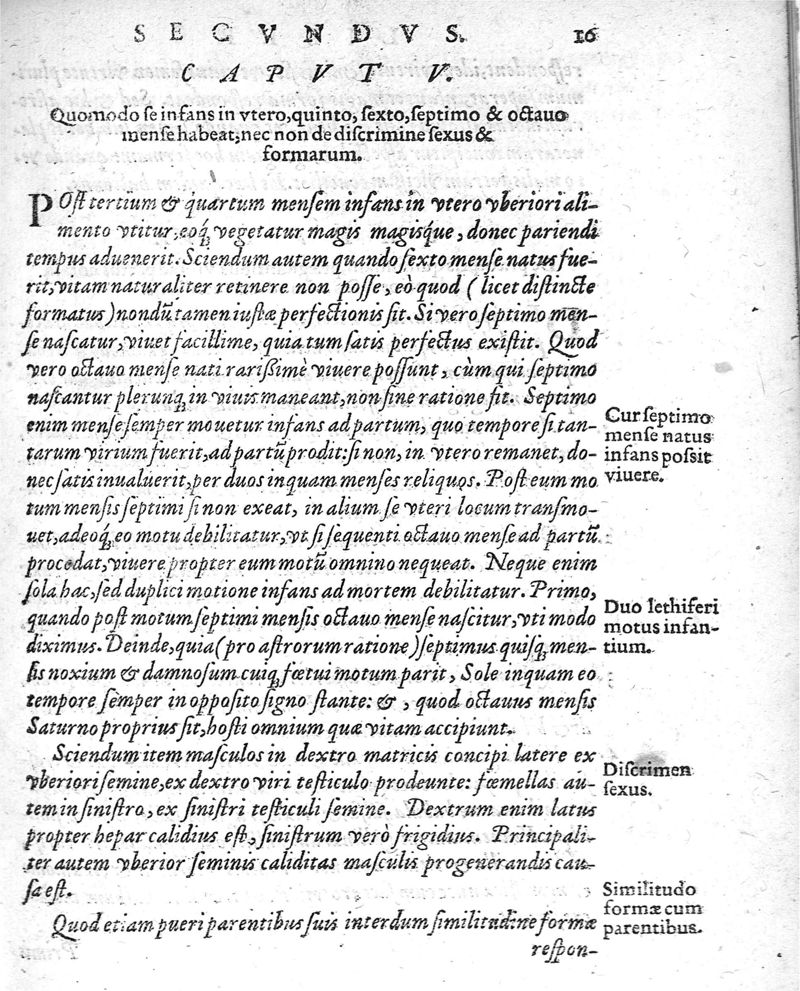 SECVNDVS. 16
CAPVT V.
Quomodo se infans in vtero, quinto, sexto, septimo & octauo
mense habeat, nec non de discrimine sexus &
formarum.
POst tertium & quartum mensem infans in vtero vberiori ali-
mento vtitur, eoq́ꝫ vegetatur magis magisq́ue, donec pariendi
tempus aduenerit. Sciendum autem quando sexto mense natus fue-
rit, vitam naturaliter retinere non posse, eò quod (licet distincte
formatus) nondũ tamen iustæ perfectionis sit. Si vero septimo men-
se nascatur, viuet facillime, quia tum satis perfectus existit. Quod
vero octauo mense nati rarißimè viuere possunt, cùm qui septimo
nascantur plerunqꝫ in viuis maneant, non sine ratione fit. Septimo
enim mense semper mouetur infans ad partum, quo tempore si tan-
tarum virium fuerit, ad partũ prodit: si non, in vtero remanet, do-
nec satis inualuerit, per duos inquam menses reliquos. Post eum mo
tum mensis septimi si non exeat, in alium se vteri locum transmo-
uet, adeoq́ꝫ eo motu debilitatur, vt si sequenti octauo mense ad partũ
procedat, viuere propter eum motũ omnino nequeat. Neque enim
sola hac, sed duplici motione infans ad mortem debilitatur. Primo,
quando post motum septimi mensis octauo mense nascitur, vti modo
diximus. Deinde, quia (pro astrorum ratione) septimus quisqꝫ men-
sis noxium & damnosum cuiqꝫ fœtui motum parit, Sole inquam eo
tempore semper in opposito signo stante: & , quod octauus mensis
Saturno proprius sit, hosti omnium quæ vitam accipiunt.
Sciendum item masculos in dextro matricis concipi latere ex
vberiori semine, ex dextro viri testiculo prodeunte: fœmellas au-
tem in sinistro, ex sinistri testiculi semine. Dextrum enim latus
propter hepar calidius est, sinistrum verò frigidius. Principali-
ter autem vberior seminis caliditas masculis progenerandis cau-
sa est.
Quod etiam pueri parentibus suis interdum similitudine formæ
respon-
Cur septimo
mense natus
infans possit
viuere.
Duo lethiferi
motus infan-
tium.
Discrimen
sexus.
Similitudo
formæ cum
parentibus.